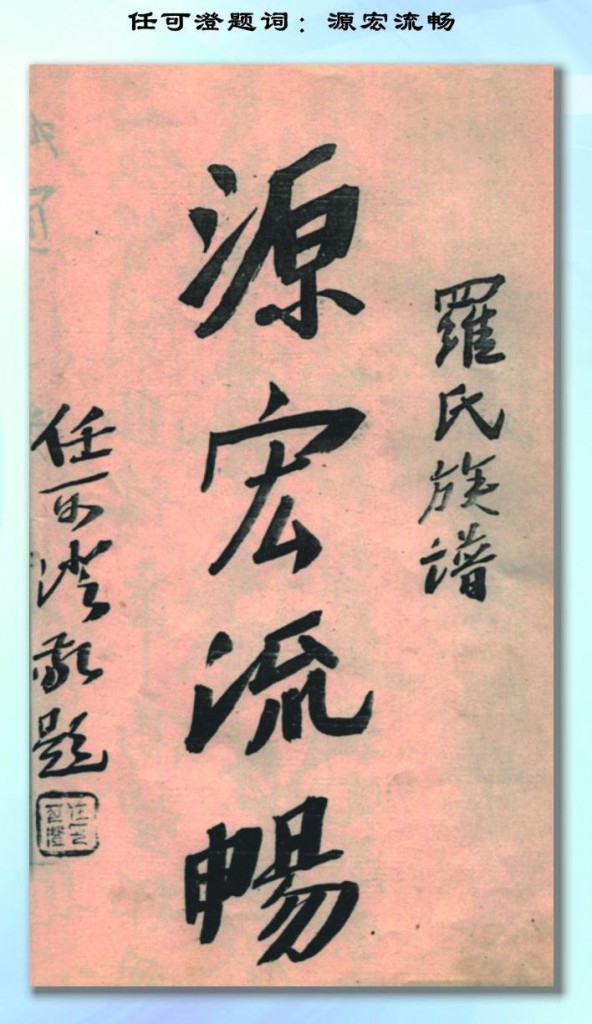 任可澄题词：源宏流畅
羅氏族譜
源宏流暢
任可澄敬題
任可澄